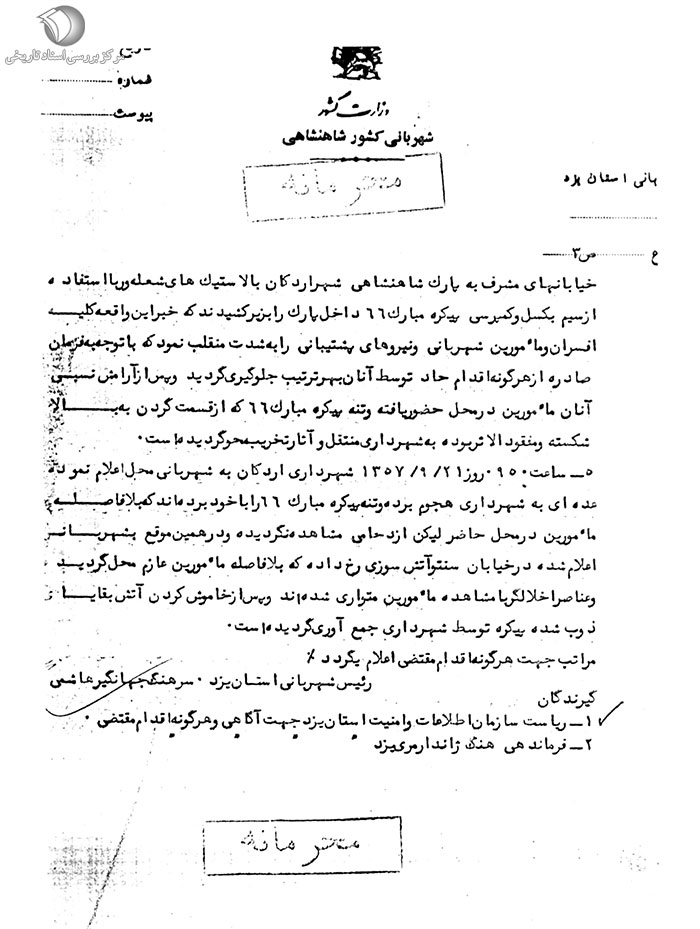 مرکز بررسی اسناد تاریخی
شماره
پیوست
وزارت کشور
شهربانی کشور شاهنشاهی
محرمانه
بانی استان یزد
ص۳
خیابانهای مشرف به پارک شاهنشاهی شهر اردکان با لاستیک های شعله ور با استفاده
از سیم بکسل و کمپرسی پیکره مبارک ۶۶ داخل پارک را بزیر کشیدند که خبر این واقعه کلیه
افسران و مأمورین شهربانی و نیروهای پشتیبانی را به شدت منقلب نمود که با توجه به فرمان
صادره از هرگونه اقدام حاد توسط آنان بهر ترتیب جلوگیری گردید و پس از آرامش نسبی
آنان مأمورین در محل حضور یافته و تنه پیکره مبارک ۶۶ که از قسمت گردن به بالا
شکسته و مفقود الاثر بوده به شهرداری منتقل و آثار تخریب محو گردیده است.
۵ـ ساعت ۰۹۵۰ روز ۱۳۵۷/۹/۲۱ شهرداری اردکان به شهربانی محل اعلام نموده
عده ای به شهرداری هجوم برده و تنه پیکره مبارک ۶۶ را با خود برده اند که بلافاصله
مأمورین در محل حاضر لیکن ازدحامی مشاهده نگردیده و در همین موقع بشهربانی
اعلام شده در خیابان سنتو آتش سوزی رخ داده که بلافاصله مأمورین عازم محل گردید
و عناصر اخلالگر با مشاهده مأمورین متواری شده اند و پس از خاموش کردن آتش بقایای
ذوب شده پیکره توسط شهرداری جمع آوری گردیده است.
مراتب جهت هرگونه اقدام مقتضی اعلام میگردد٪
رئیس شهربانی استان یزد. سرهنگ جهانگیر هاشمی
گیرندگان
۱ـ ریاست سازمان اطلاعات و امنیت استان یزد جهت آگاهی و هرگونه اقدام مقتضی.
۲ـ فرماندهی هنگ ژاندارمری یزد
محرمانه